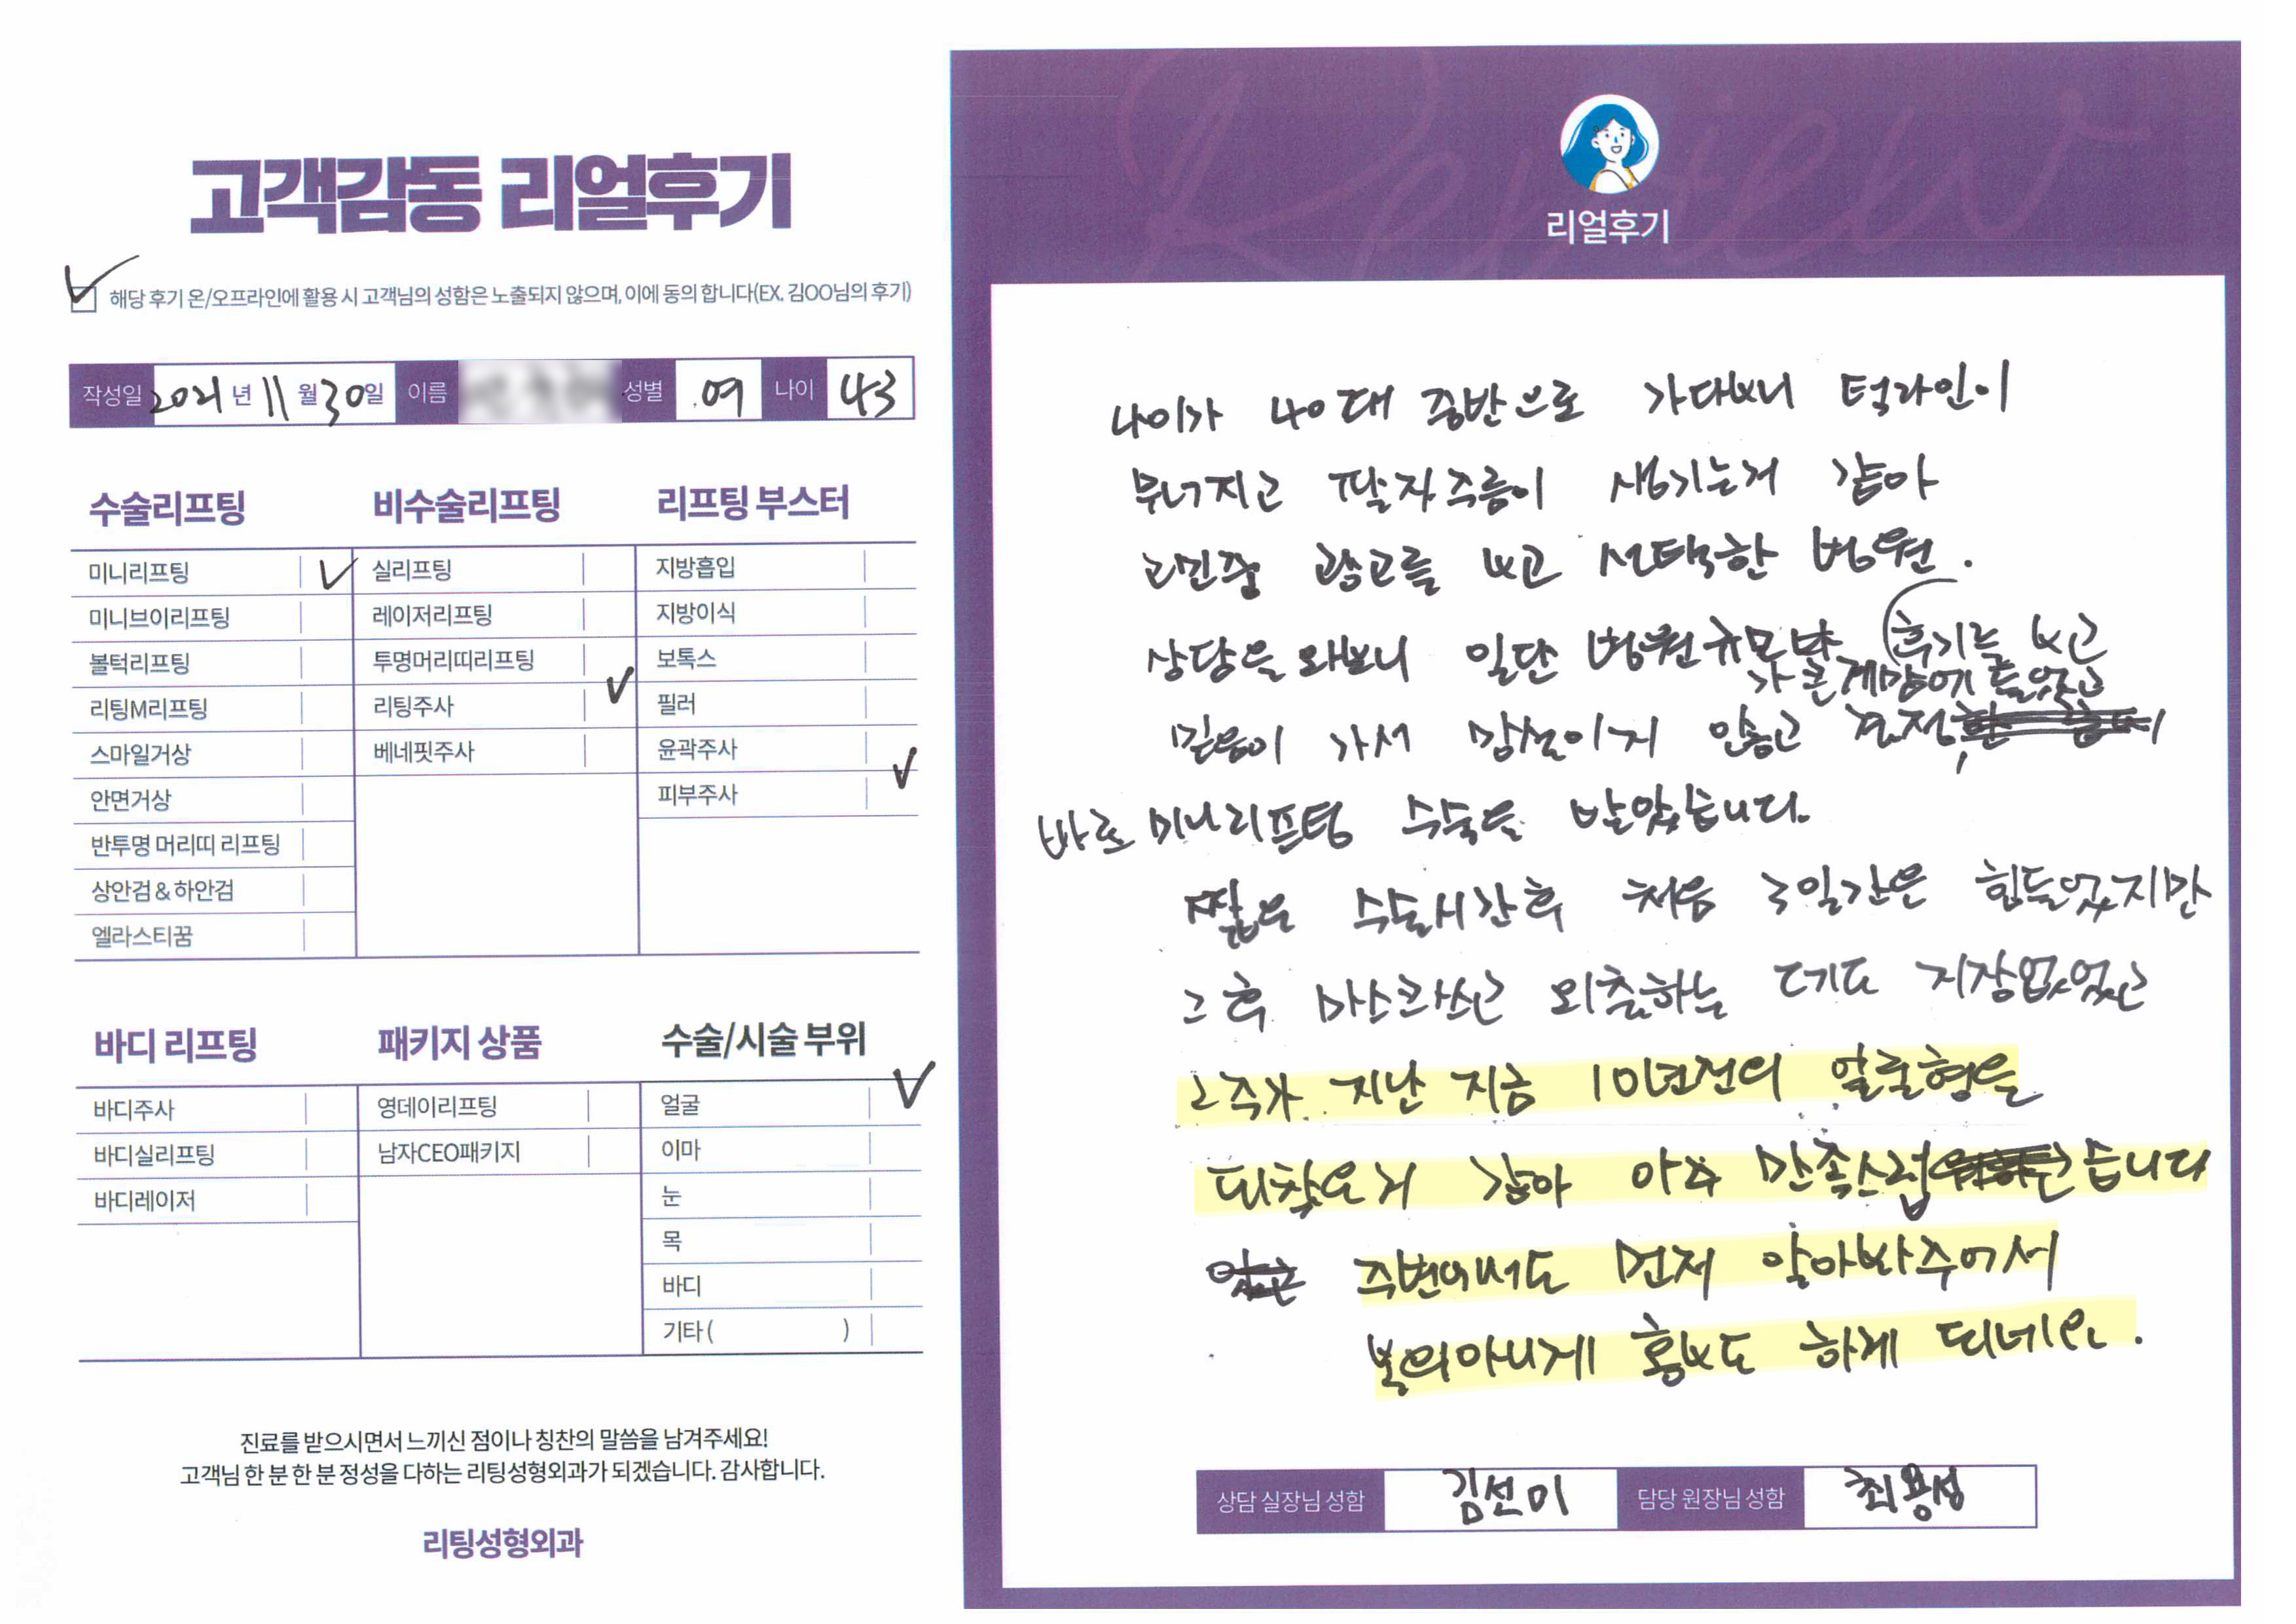 고객감동 리얼후기
해당 후기 온/오프라인에 활용 시 고객님의 성함은 노출되지 않으며, 이에 동의 합니다(EX. 김OO님의 후기)
작성일 2021년 11월 30일 이름 성별 여 나이 43
수술리프팅
미니리프팅
미니브이리프팅
볼턱리프팅
리팅M리프팅
스마일거상
안면거상
반투명 머리띠 리프팅
상안검 & 하안검
엘라스티꿈
비수술리프팅
실리프팅
레이저리프팅
투명머리띠리프팅
리팅주사
베네핏주사
리프팅 부스터
지방흡입
지방이식
보톡스
필러
윤곽주사
피부주사
바디 리프팅
바디주사
바디실리프팅
바디레이저
패키지 상품
영데이리프팅
남자CEO패키지
수술/시술 부위
얼굴
이마
눈
목
바디
기타 ( )
진료를 받으시면서 느끼신 점이나 칭찬의 말씀을 남겨주세요!
고객님 한 분 한 분 정성을 다하는 리팅성형외과가 되겠습니다. 감사합니다.
리팅성형외과
Review
리얼후기
나이가 40대 중반으로 가다보니 턱라인이
무너지고 팔자주름이 생기는거 같아
고민중 광고를 보고 선택한 병원.
상담을 와보니 일단 병원규모 후기를 보고
가 큰게 맘에 들었고
믿음이 가서 망설이지 않고 결정,
바로 미니리프팅 수술을 받았습니다.
짧은 수술시간후 처음 3일간은 힘들었지만
그 후 마스크쓰고 외출하는 데도 지장없었고
2주가 지난 지금 10년전의 얼굴형을
되찾은거 같아 아주 만족스럽습니다
주변에서도 먼저 알아봐주어서
본의아니게 홍보도 하게 되네요.
상담 실장님 성함 김선미 담당 원장님 성함 최용성